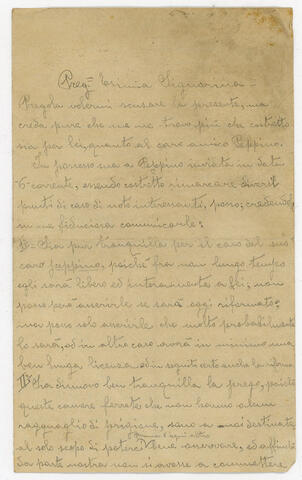 Preg.ma Esimia Signorina -
Pregola volermi scusare la presente, ma
creda pure che me ne trovo più che costretto
sia per lei, quanto al caro amico Peppino.
In possesso sua a Peppino inviata in data
6 corrente, essendo costretto rimarcare diversi
punti di caso di noto interessanti, posso, credendo,
in me fiduciosa comunicarle:
I° Stia pur tranquilla per il caso del suo
caro Peppino, poiché fra non lungo tempo
egli sarà libero ed interamente a fi; non
posso però asserirle se sarà oggi riformato:
ma posso solo asserirle che molto probabilmente
lo sarà, ed in altro caso avrà in minimo una
ben lunga licenza, ed in seguito certo anche la riforma.
II° Stia di nuovo ben tranquilla la prego, poiché
queste camere ferrate che non hanno alcun
ragguaglio di prigione, sono a noi destinate
al solo scopo di poterci bene osservare, ed affinché
da parte nostra non si avesse a commettere